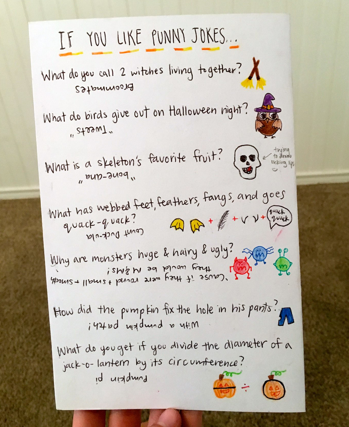 IF YOU LIKE PUNNY JOKES...
What do you call 2 witches living together?
Broommates
What do birds give out on Halloween night?
"Tweets"
What is a skeleton's favorite fruit?
"bone-ana"
trying to
What has webbed feet, feathers, fangs, and goes
quack-quack?
Count Duck-ula
quack
quack
Why are monsters huge & hairy & ugly?
'Cause if they were round & small & smooth
they would be M&Ms!
m
m
m
How did the pumpkin fix the hole in his pants?
With a pumpkin patch!
What do you get if you divide the diameter of a
jack-o-lantern by its circumference?
Pumpkin pi